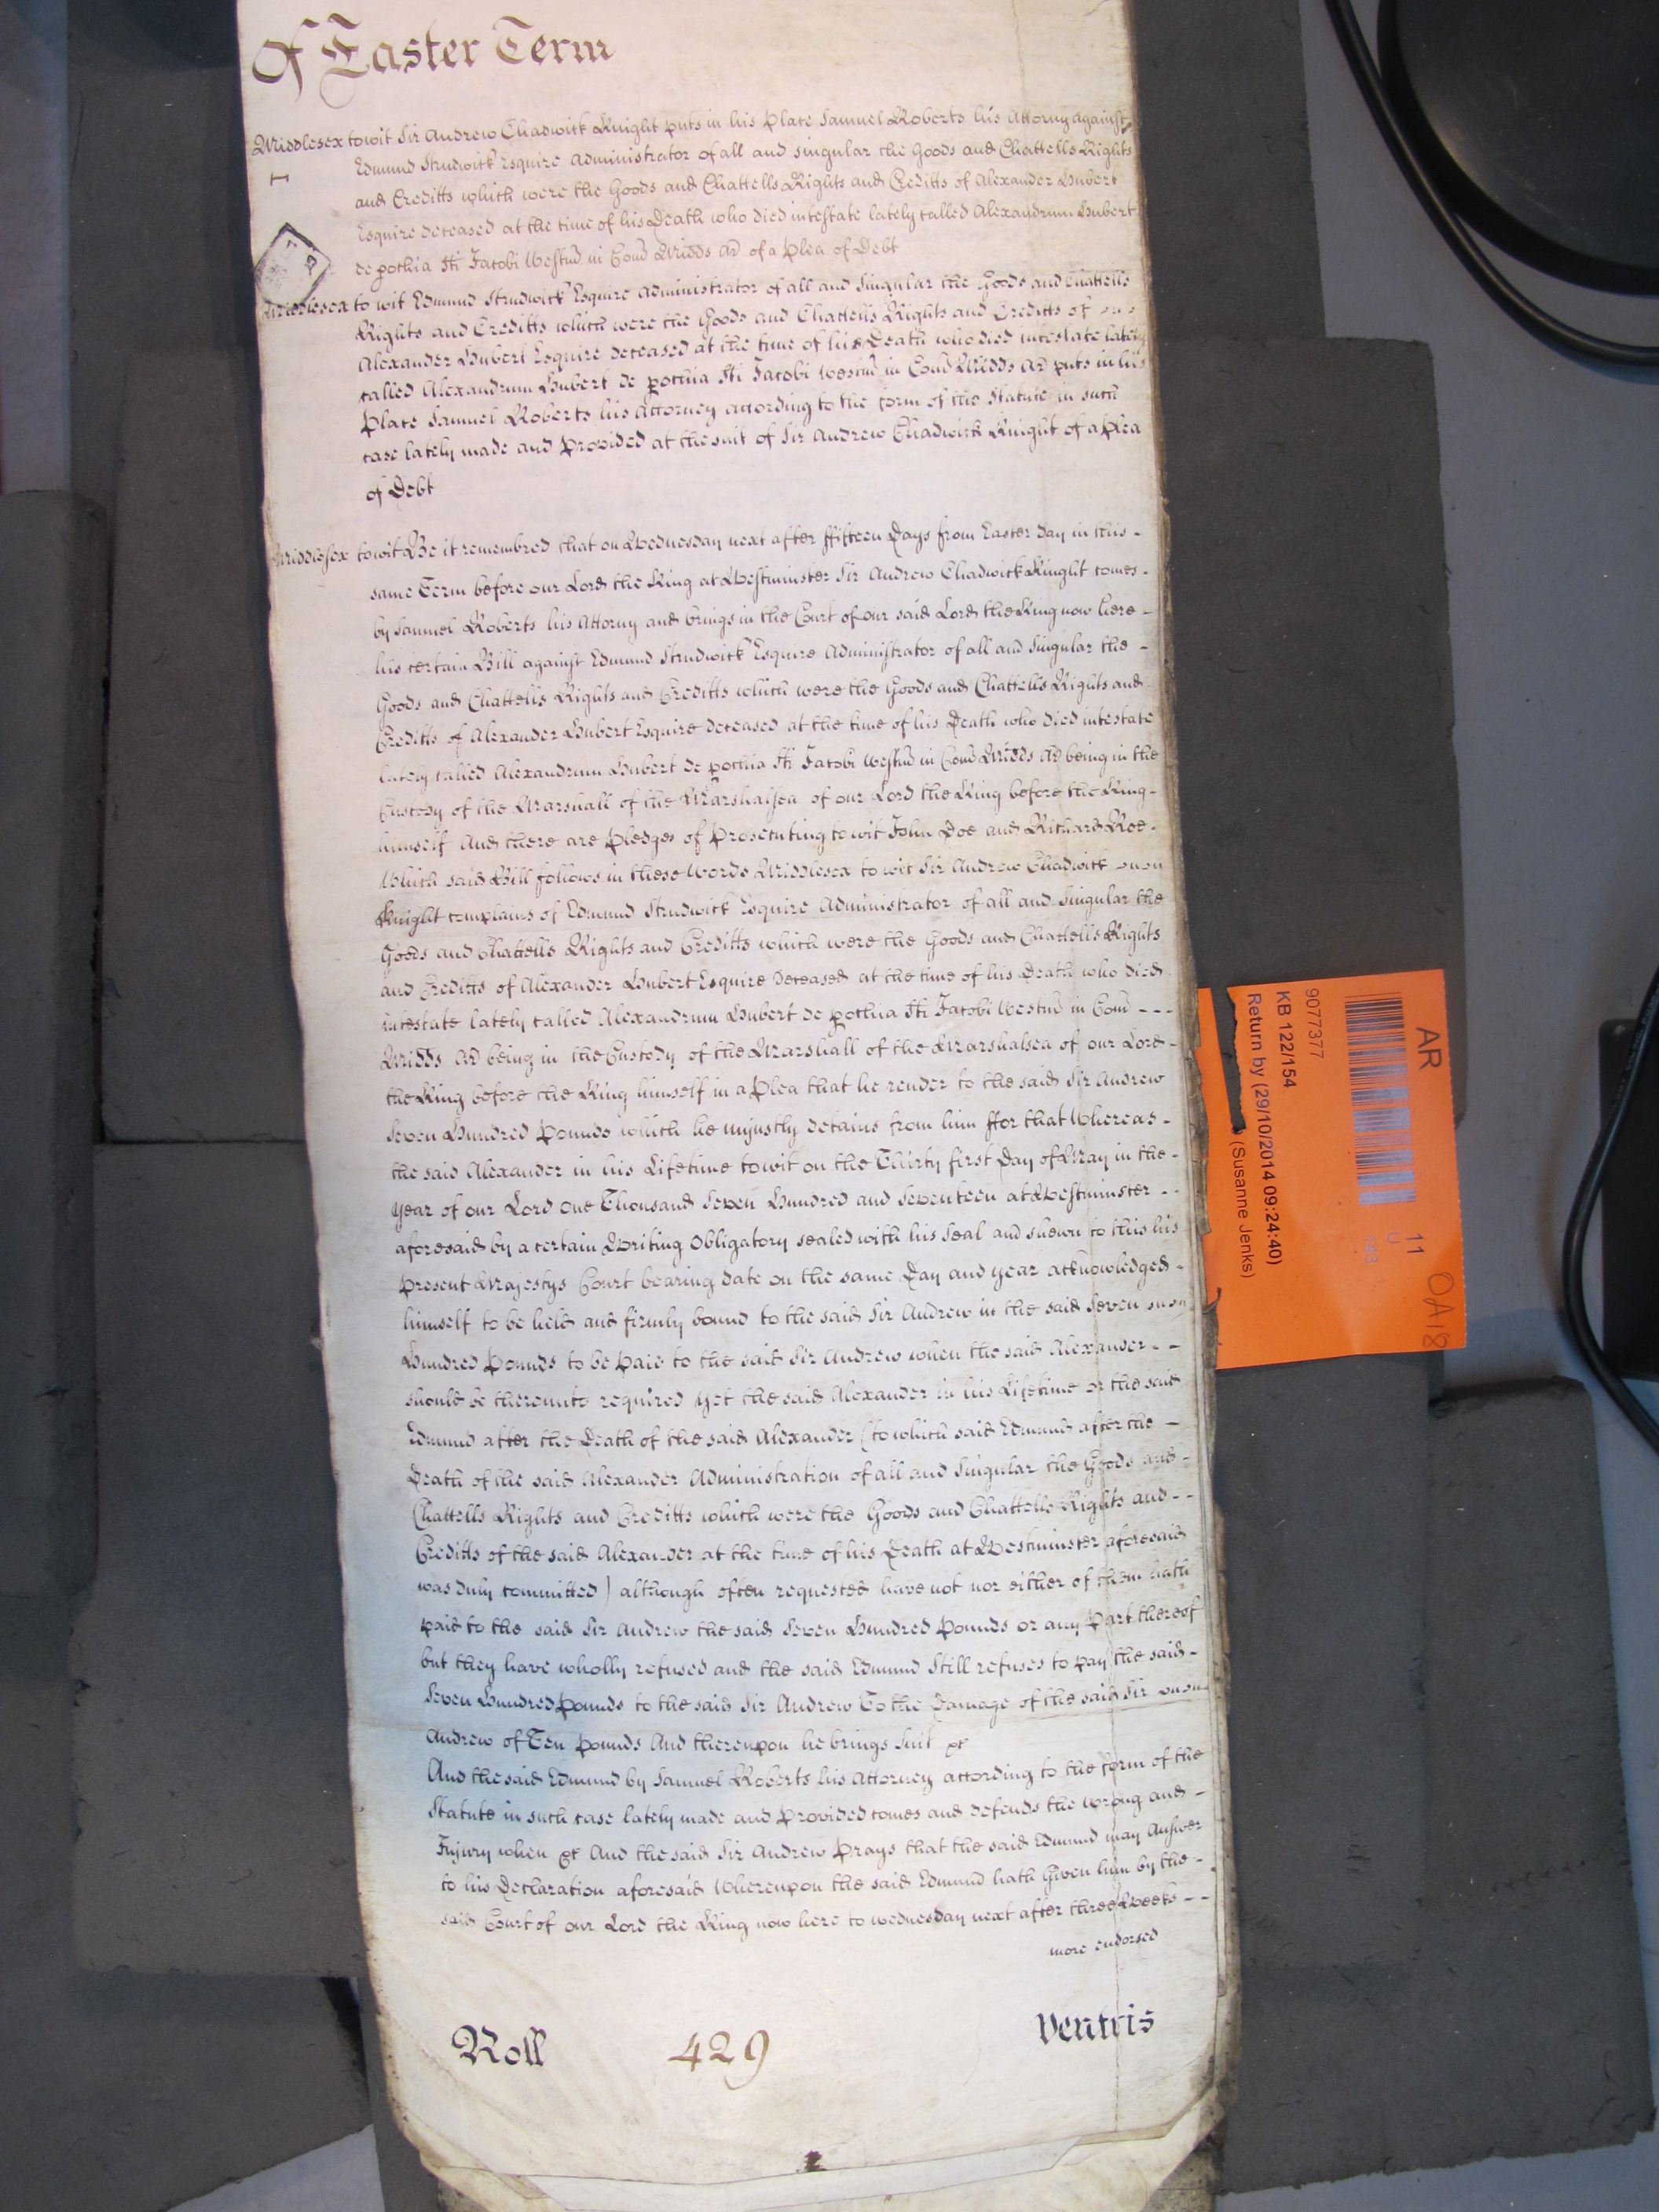 Of Easter Term
Middlesex to wit Sir Andrew Chadwick Knight puts in his place Samuel Roberts his Attorny against
Edmund Strudwick Esquire Administrator of all and singular the Goods and Chattells Rights
and Creditts which were the Goods and Chattells Rights and Creditts of Alexander Hubert
Esquire deceased at the time of his Death who died intestate lately called Alexandrum Hubert
de pochia Sti Jacobi Westm in Com Midds Ar of a Plea of Debt
Middlesex to wit Edmund Strudwick Esquire Administrator of all and Singular the Goods and Chattells
Rights and Creditts which were the Goods and Chattells Rights and Creditts of
Alexander Hubert Esquire deceased at the time of his Death who died intestate lately
called Alexandrum Hubert de pochia Sti Jacobi Westm in Com Midds Ar puts in his
Place Samuel Roberts his Attorney according to the form of the Statute in such
case lately made and provided at the suit of Sir Andrew Chadwick Knight of a plea
of Debt
Middlesex to wit Be it remembred that on Wednesday next after ffifteen Days from Easter Day in this -
same Term before our Lord the King at Westminster Sir Andrew Chadwick Knight comes -
by Samuel Roberts his Attorny and brings in the Court of our said Lord the King now here -
his certain Bill against Edmund Strudwick Esquire Administrator of all and Singular the -
Goods and Chattells Rights and Creditts which were the Goods and Chattells Rights and
Creditts of Alexander Hubert Esquire deceased at the time of his Death who died intestate
lately called Alexandrum Hubert de pochia Sti Jacobi Westm in Com Midds Ar being in the
Custody of the Marshall of the Marshalsea of our Lord the King before the King -
himself And there are pledges of Prosecuting to wit John Doe and Richard Roe -
Which said Bill follows in these Words Middlesex to wit Sir Andrew Chadwick
Knight complains of Edmund Strudwick Esquire Administrator of all and Singular the
Goods and Chattells Rights and Creditts which were the Goods and Chattells Rights
and Creditts of Alexander Hubert Esquire Deceased at the time of his Death who died
intestate lately called Alexandrum Hubert de pochia Sti Jacobi Westm in Com - - -
Midds Ar being in the Custody of the Marshall of the Marshalsea of our Lord -
the King before the King himself in a Plea that he render to the said Sir Andrew
Seven Hundred Pounds which he unjustly detains from him ffor that Whereas -
the said Alexander in his Lifetime to wit on the Thirty first Day of May in the -
year of our Lord One Thousand Seven Hundred and Seventeen at Westminster - -
aforesaid by a certain Writing Obligatory sealed with his Seal and shewn to this his
present Majestys Court bearing date on the same Day and year acknowledged -
himself to be held and firmly bound to the said Sir Andrew in the said Seven
Hundred Pounds to be paid to the said Sir Andrew when the said Alexander - -
should be thereunto required yet the said Alexander in his Lifetime or the said
Edmund after the Death of the said Alexander (to which said Edmund after the -
Death of the said Alexander Administration of all and Singular the Goods and -
Chattells Rights and Creditts which were the Goods and Chattells Rights and - -
Creditts of the said Alexander at the time of his Death at Westminster aforesaid
was duly committed) although often requested have not nor either of them hath
paid to the said Sir Andrew the said Seven Hundred Pounds or any Part thereof
but they have wholly refused and the said Edmund Still refuses to pay the said -
Seven Hundred Pounds to the said Sir Andrew To the Damage of the said Sir
Andrew of Ten Pounds And thereupon he brings Suit &c
And the said Edmund by Samuel Roberts his Attorney according to the form of the
Statute in such case lately made and provided comes and defends the Wrong and -
Injury when &c And the said Sir Andrew Prays that the said Edmund may Answer
to his Declaration aforesaid Whereupon the said Edmund hath Given him by the -
said Court of our Lord the King now here to Wednesday next after three Weeks - -
more endorsed
Roll 429 Ventris
AR
11
9077377
KB 122/154
Return by (29/10/2014 09:24:40)
(Susanne Jenks)
OA18